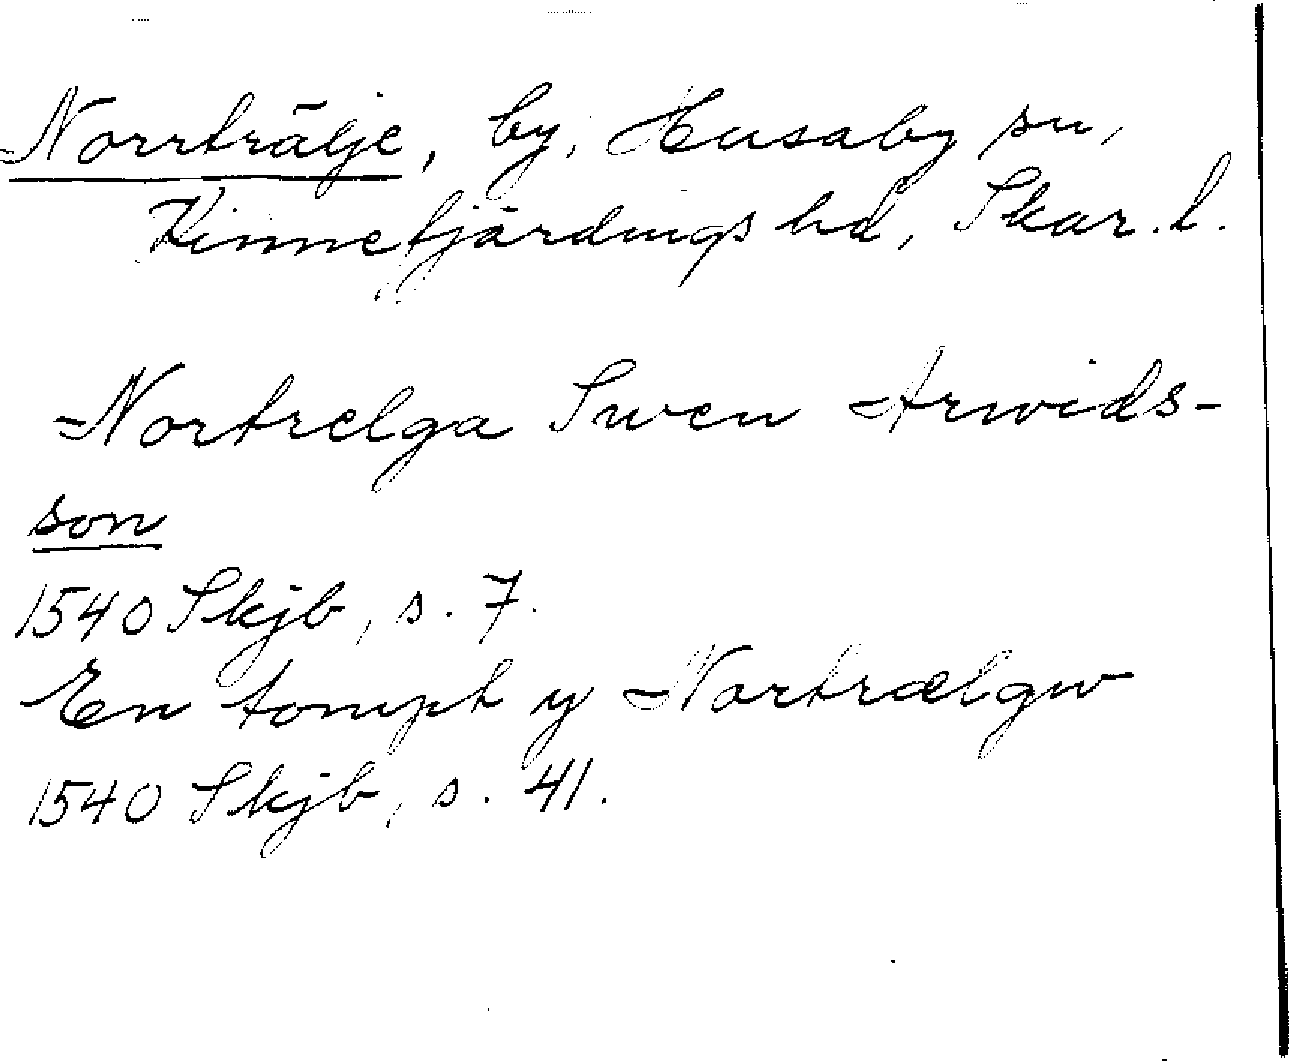 Norrträlje, by, Husaby sn,
Kinnefjärdings hd, Skar. l.
Nortrelga Swen Arwids-
son
1540 Skjb, s. 7.
En tompt y Nortrælgw
1540 Skjb, s. 41.